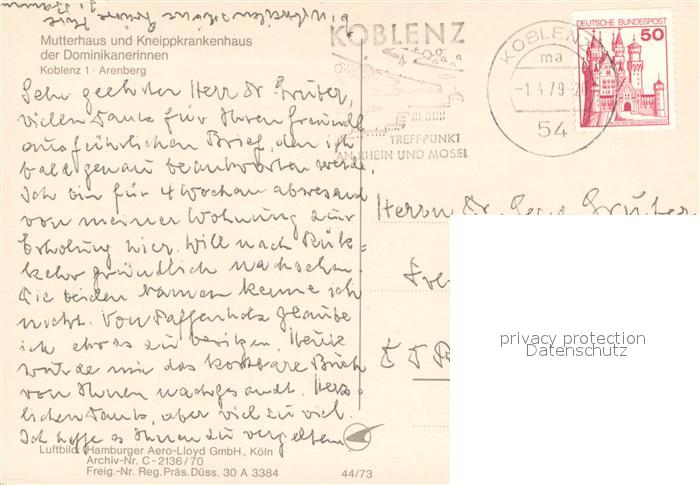 Mutterhaus und Kneippkrankenhaus
der Dominikanerinnen
Koblenz 1 · Arenberg
Sehr geehrter Herr Dr Gruber,
vielen Dank für Ihren freundl
ausführlichen Brief, den ich
bald genau beantworten werde.
Ich bin für 4 Wochen abwesend
von meiner Wohnung zur
Erholung hier. Will nach Rük=
kehr gründlich nachsehen.
Die beiden Namen kenne ich
nicht. Von Paffenholz glaube
ich etwas zu besitzen. Heute
wurde mir das kostbare Buch
von Ihnen nachgesandt. Herz=
lichen Dank, aber viel zu viel.
Ich hoffe es Ihnen zu vergelten
Luftbild: Hamburger Aero-Lloyd GmbH., Köln
Archiv-Nr. C - 2136/70
Freig.-Nr. Reg.Präs.Düss. 30 A 3384
44/73
KOBLENZ
TREFFPUNKT
AN RHEIN UND MOSEL
KOBLENZ
ma
-1.4.79
54
DEUTSCHE BUNDESPOST
50
Herrn Dr. Gruber
privacy protection
Datenschutz